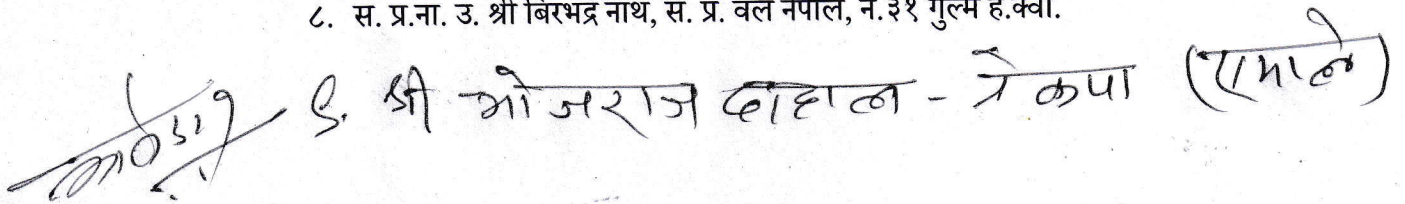 ८. स. प्र.ना. उ. श्री बिरभद्र नाथ, स. प्र. वल नेपाल, नं.३१ गुल्म हे.क्वा.
९. श्री भोजराज दाहाल - ने कपा (एमाले)